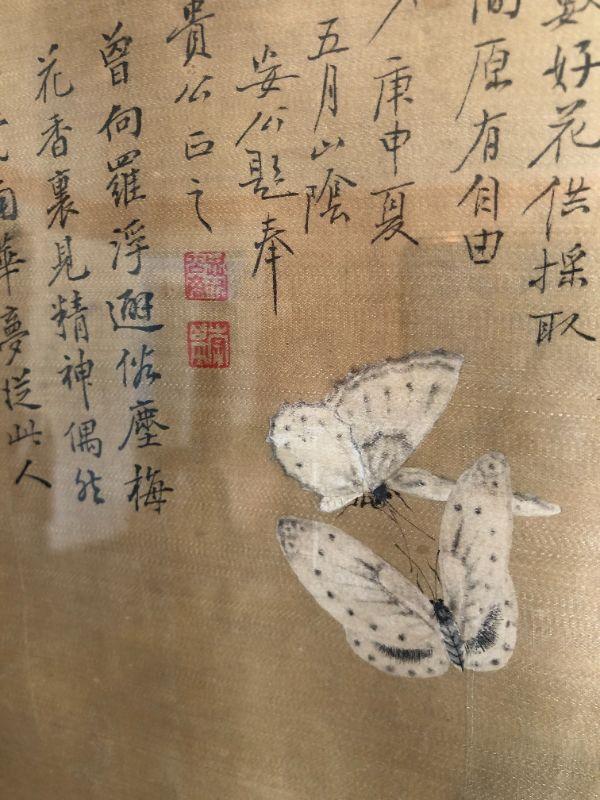 好花供採取
間原有自由
庚申夏
五月山陰
安公題奉
貴公正之
曾向羅浮避俗塵梅
花香裏見精神偶然
南華夢從此人